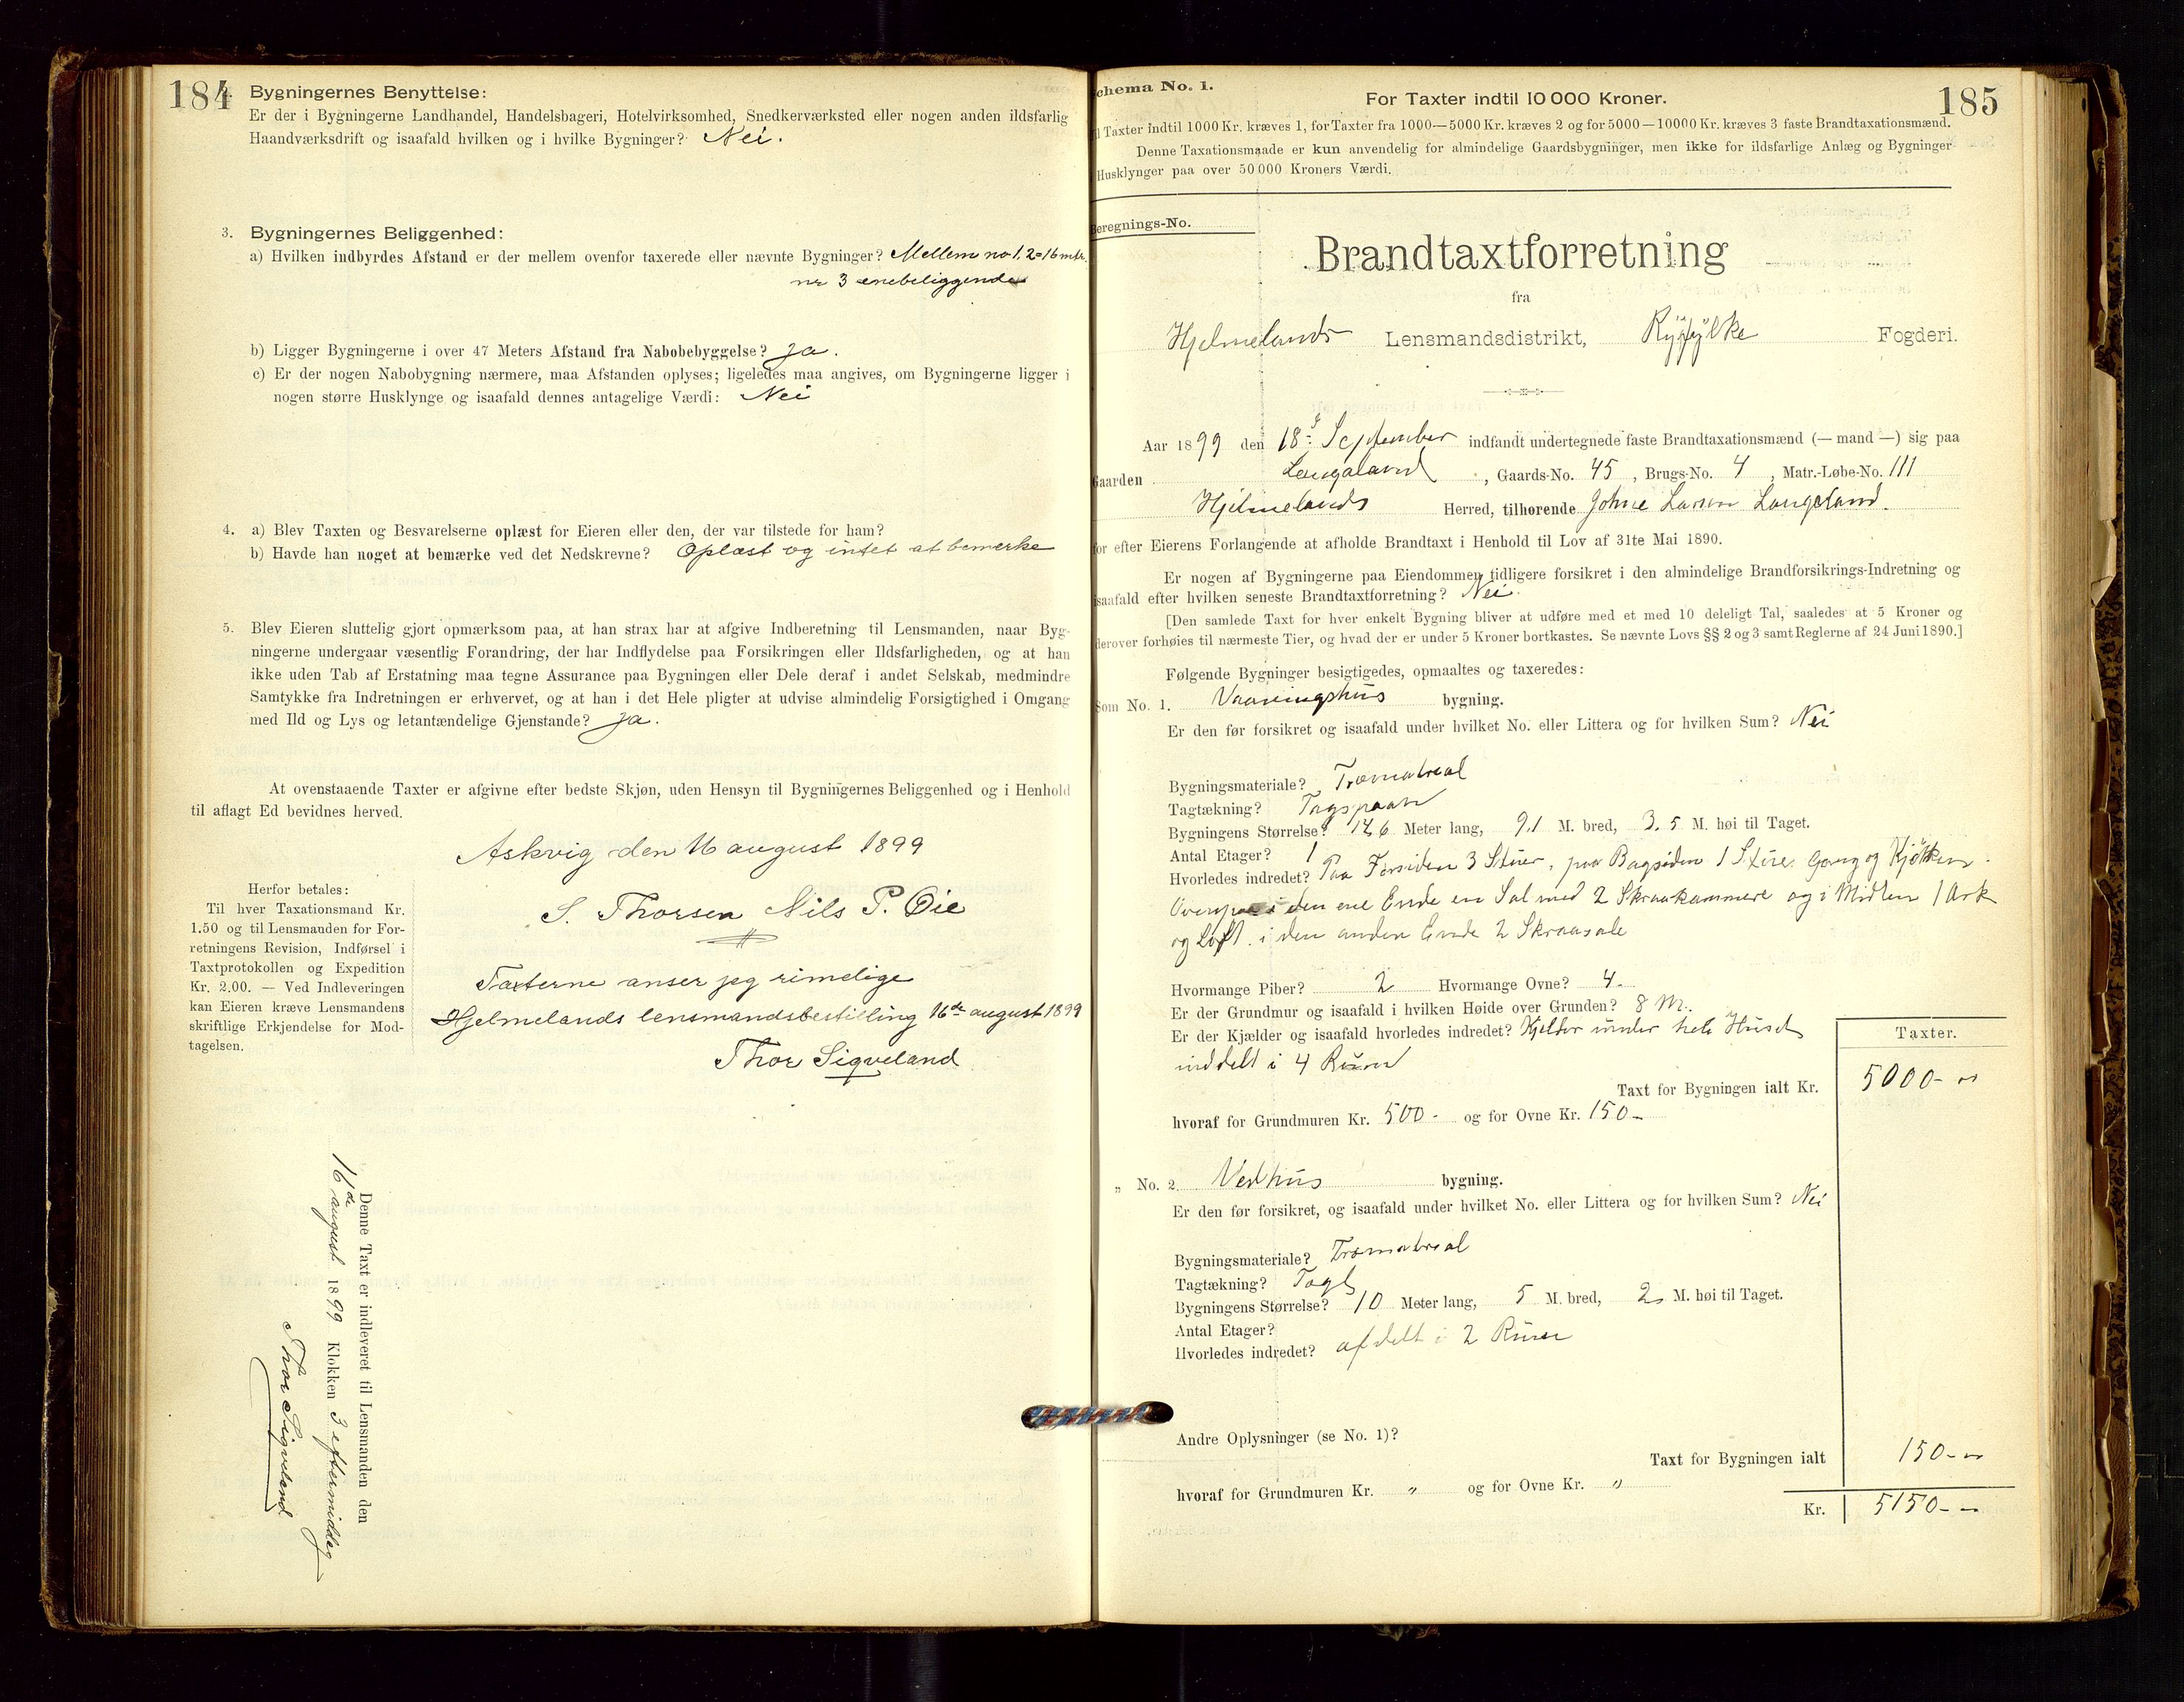 184
Bygningernes Benyttelse:
Er der i Bygningerne Landhandel, Handelsbageri, Hotelvirksomhed, Snedkerværksted eller nogen anden ildsfarlig
Haandværksdrift og isaafald hvilken og i hvilke Bygninger? Nei.
3. Bygningernes Beliggenhed:
a) Hvilken indbyrdes Afstand er der mellem ovenfor taxerede eller nævnte Bygninger? Mellem no 1, 2 = 16 mtr.
nr 3 enebeliggende
b) Ligger Bygningerne i over 47 Meters Afstand fra Nabobebyggelse? Ja.
c) Er der nogen Nabobygning nærmere, maa Afstanden oplyses; ligeledes maa angives, om Bygningerne ligger i
nogen større Husklynge og isaafald dennes antagelige Værdi: Nei
4. a) Blev Taxten og Besvarelserne oplæst for Eieren eller den, der var tilstede for ham?
b) Havde han noget at bemærke ved det Nedskrevne? Oplæst og intet at bemerke
5. Blev Eieren sluttelig gjort opmærksom paa, at han strax har at afgive Indberetning til Lensmanden, naar Byg-
ningerne undergaar væsentlig Forandring, der har Indflydelse paa Forsikringen eller Ildsfarligheden, og at han
ikke uden Tab af Erstatning maa tegne Assurance paa Bygningen eller Dele deraf i andet Selskab, medmindre
Samtykke fra Indretningen er erhvervet, og at han i det Hele pligter at udvise almindelig Forsigtighed i Omgang
med Ild og Lys og letantændelige Gjenstande? Ja.
At ovenstaaende Taxter er afgivne efter bedste Skjøn, uden Hensyn til Bygningernes Beliggenhed og i Henhold
til aflagt Ed bevidnes herved.
Askvig den 16 august 1899
S. Thorsen Nils P. Øie
Taxterne anser jeg rimelige
Hjelmelands lensmandsbestilling 16de august 1899
Thor Sigveland
Herfor betales:
Til hver Taxationsmand Kr.
1.50 og til Lensmanden for For-
retningens Revision, Indførsel i
Taxtprotokollen og Expedition
Kr. 2.00. — Ved Indleveringen
kan Eieren kræve Lensmandens
skriftlige Erkjendelse for Mod-
tagelsen.
Denne Taxt er indleveret til Lensmanden den
16de august 1899 Klokken 3 eftermiddag
Thor Sigveland
185
chema No. 1.
For Taxter indtil 10 000 Kroner.
l Taxter indtil 1000 Kr. kræves 1, for Taxter fra 1000—5000 Kr. kræves 2 og for 5000—10000 Kr. kræves 3 faste Brandtaxationsmænd.
Denne Taxationsmaade er kun anvendelig for almindelige Gaardsbygninger, men ikke for ildsfarlige Anlæg og Bygninger
Husklynger paa over 50 000 Kroners Værdi.
Beregnings-No.
Brandtaxtforretning
fra
Hjelmelands Lensmandsdistrikt, Ryfylke Fogderi.
Aar 1899 den 18 September indfandt undertegnede faste Brandtaxationsmænd (— mand —) sig paa
Gaarden Langeland, Gaards-No. 45, Brugs-No. 4, Matr.-Løbe-No. 111
Hjelmelands Herred, tilhørende Johne Larsen Langeland.
for efter Eierens Forlangende at afholde Brandtaxt i Henhold til Lov af 31te Mai 1890.
Er nogen af Bygningerne paa Eiendommen tidligere forsikret i den almindelige Brandforsikrings-Indretning og
isaafald efter hvilken seneste Brandtaxtforretning? Nei.
[Den samlede Taxt for hver enkelt Bygning bliver at udføre med et med 10 deleligt Tal, saaledes at 5 Kroner og
derover forhøies til nærmeste Tier, og hvad der er under 5 Kroner bortkastes. Se nævnte Lovs §§ 2 og 3 samt Reglerne af 24 Juni 1890.]
Følgende Bygninger besigtigedes, opmaaltes og taxeredes:
Som No. 1. Vaaningshus bygning.
Er den før forsikret og isaafald under hvilket No. eller Littera og for hvilken Sum? Nei
Bygningsmateriale? Træmatreal
Tagtækning? Tagspaan
Bygningens Størrelse? Meter lang, 9.1 M. bred, 3.5 M. høi til Taget.
Antal Etager? 1
Hvorledes indredet? Paa Forsiden 3 Stuer, paa Bagsiden 1 Stue, Gang og Kjøkken.
i den ene Ende en Sal med 2 Skraakammere og i Midten 1 Ark
og Loft. i den anden Ende 2 Skraasale
Hvormange Piber? 2 Hvormange Ovne? 4.
Er der Grundmur og isaafald i hvilken Høide over Grunden? 8 M.
Er der Kjælder og isaafald hvorledes indredet? Kjelder under hele Huset
inddelt i 4 Rum
Taxter.
Taxt for Bygningen ialt Kr. 5000-
hvoraf for Grundmuren Kr. 500- og for Ovne Kr. 150-
„ No. 2. Vedhus bygning.
Er den før forsikret, og isaafald under hvilket No. eller Littera og for hvilken Sum? Nei
Bygningsmateriale? Træmatreal
Tagtækning? Tagl
Bygningens Størrelse? 10 Meter lang, 5 M. bred, 2 M. høi til Taget.
Antal Etager?
Hvorledes indredet? afdelt i 2 Rum
Andre Oplysninger (se No. 1)?
Taxt for Bygningen ialt 150-
hvoraf for Grundmuren Kr. „ og for Ovne Kr. „
Kr. 5150--